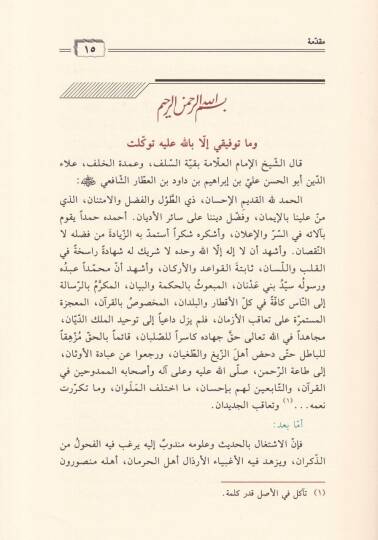 مقدّمة
١٥
بسم الله الرحمن الرحيم
وما توفيقي إلّا بالله عليه توكّلت
قال الشّيخ الإمام العلّامة بقيّة السّلف، وعمدة الخلف، علاء
الدّين أبو الحسن عليّ بن إبراهيم بن داود بن العطّار الشّافعي ﷺ:
الحمد لله القديم الإحسان، ذي الطَّوْل والفضل والامتنان، الذي
منّ علينا بالإيمان، وفضّل ديننا على سائر الأديان. أحمده حمداً يقوم
بآلائه في السّرّ والإعلان، وأشكره شكراً أستمدّ به الزّيادة من فضله لا
النّقصان. وأشهد أن لا إله إلّا الله وحده لا شريك له شهادةً راسخةً في
القلب واللّسان، ثابتةَ القواعد والأركان، وأشهد أنّ محمّداً عبدُه
ورسولُه سيّدُ بني عَدْنان، المبعوثُ بالحكمة والبيان، المكرَّمُ بالرّسالة
إلى النّاس كافّةً في كلّ الأقطار والبلدان، المخصوصُ بالقرآن، المعجزة
المستمرّة على تعاقب الأزمان، فلم يزل داعياً إلى توحيد الملك الدّيّان،
مجاهداً في الله تعالى حقَّ جهاده كاسراً للصّلبان، قائماً بالحقّ مُزْهِقاً
للباطل حتّى دحض أهلَ الزّيغ والطّغيان، ورجعوا عن عبادة الأوثان،
إلى طاعة الرّحمن، صلّى الله عليه وعلى آله وأصحابه الممدوحين في
القرآن، والتّابعين لهم بإحسان، ما اختلف المَلَوان، وما تكرّرت
نعمه...(١) وتعاقب الجديدان.
أمّا بعد:
فإنّ الاشتغال بالحديث وعلومه مندوبٌ إليه يرغب فيه الفحولُ من
الذّكران، ويزهد فيه الأغبياء الأرذال أهل الحرمان، أهله منصورون
(١) تآكل في الأصل قدر كلمة.